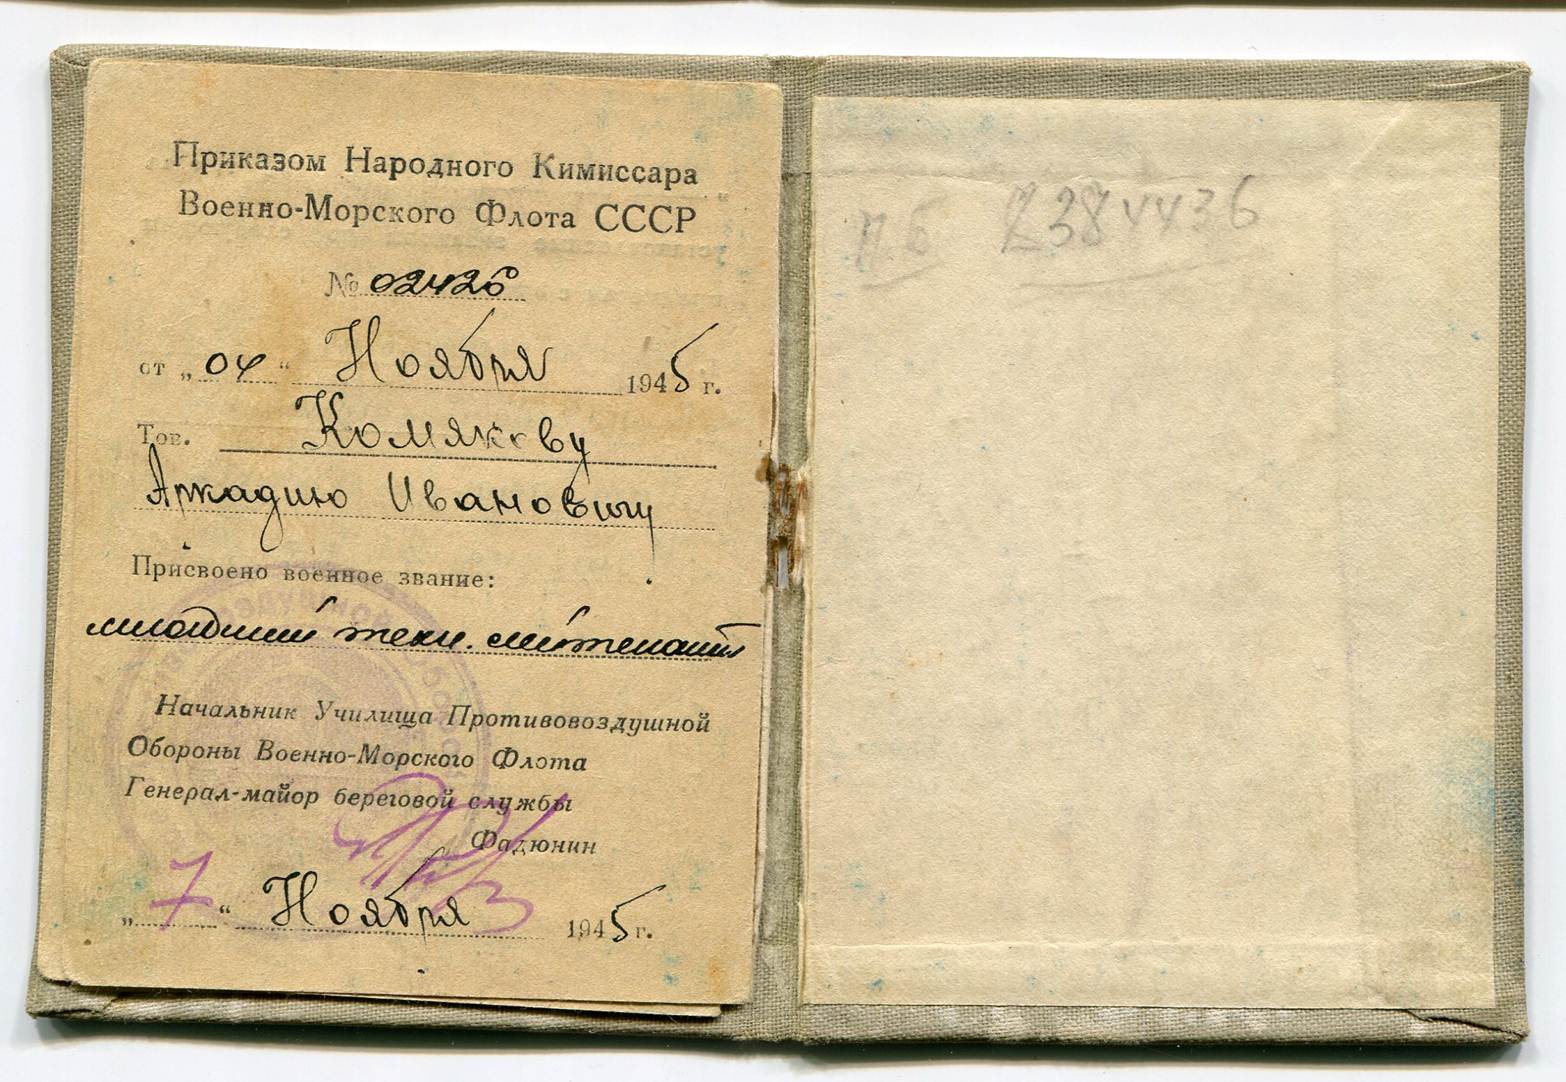 Приказом Народного Кимиссара
Военно-Морского Флота СССР
№ 02426
от „04“ Ноября 1945 г.
Тов. Комякову
Аркадию Ивановичу
Присвоено военное звание:
младший техн. лейтенант
Начальник Училища Противовоздушной
Обороны Военно-Морского Флота
Генерал-майор береговой службы
Фадюнин
„7“ Ноября 1945 г.
п.б